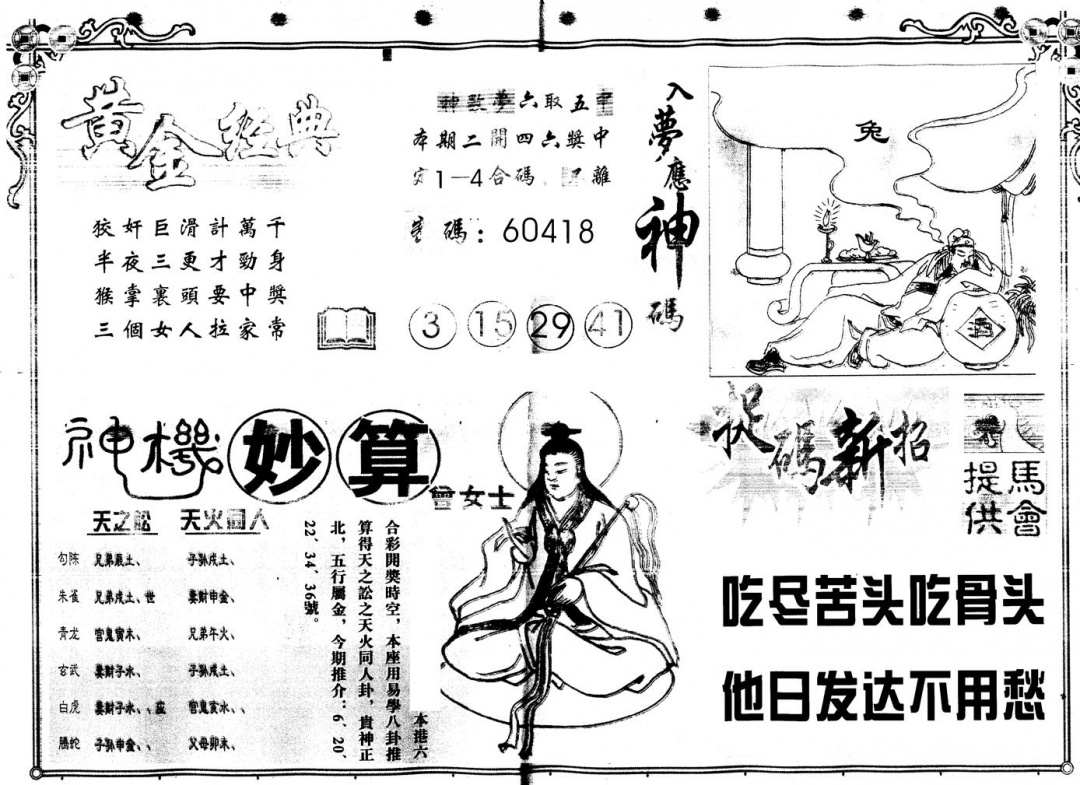 黃金經典
狡奸巨滑計萬千
半夜三更才勁身
猴掌裏頭要中獎
三個女人拉家常
神數夢六取五中
本期二開四六獎中
1—4合碼 離
碼：60418
3 15 29 41
入夢應神碼
兔
神機妙算
曾女士
天之訟 天火同人
勾陈 兄弟辰土、 子孙戌土、
朱雀 兄弟戌土、世 妻财申金、
青龙 官鬼寅木、 兄弟午火、
玄武 妻财子水、 子孙戌土、
白虎 妻财子水、、应 官鬼亥水、、
腾蛇 子孙申金、、 父母卯木、
本港六
合彩開獎時空，本座用易學八卦推
算得天之訟之天火同人卦，貴神正
北，五行屬金，今期推介：6、20、
22、34、36號。
捉碼新招
馬會
提供
吃尽苦头吃骨头
他日发达不用愁